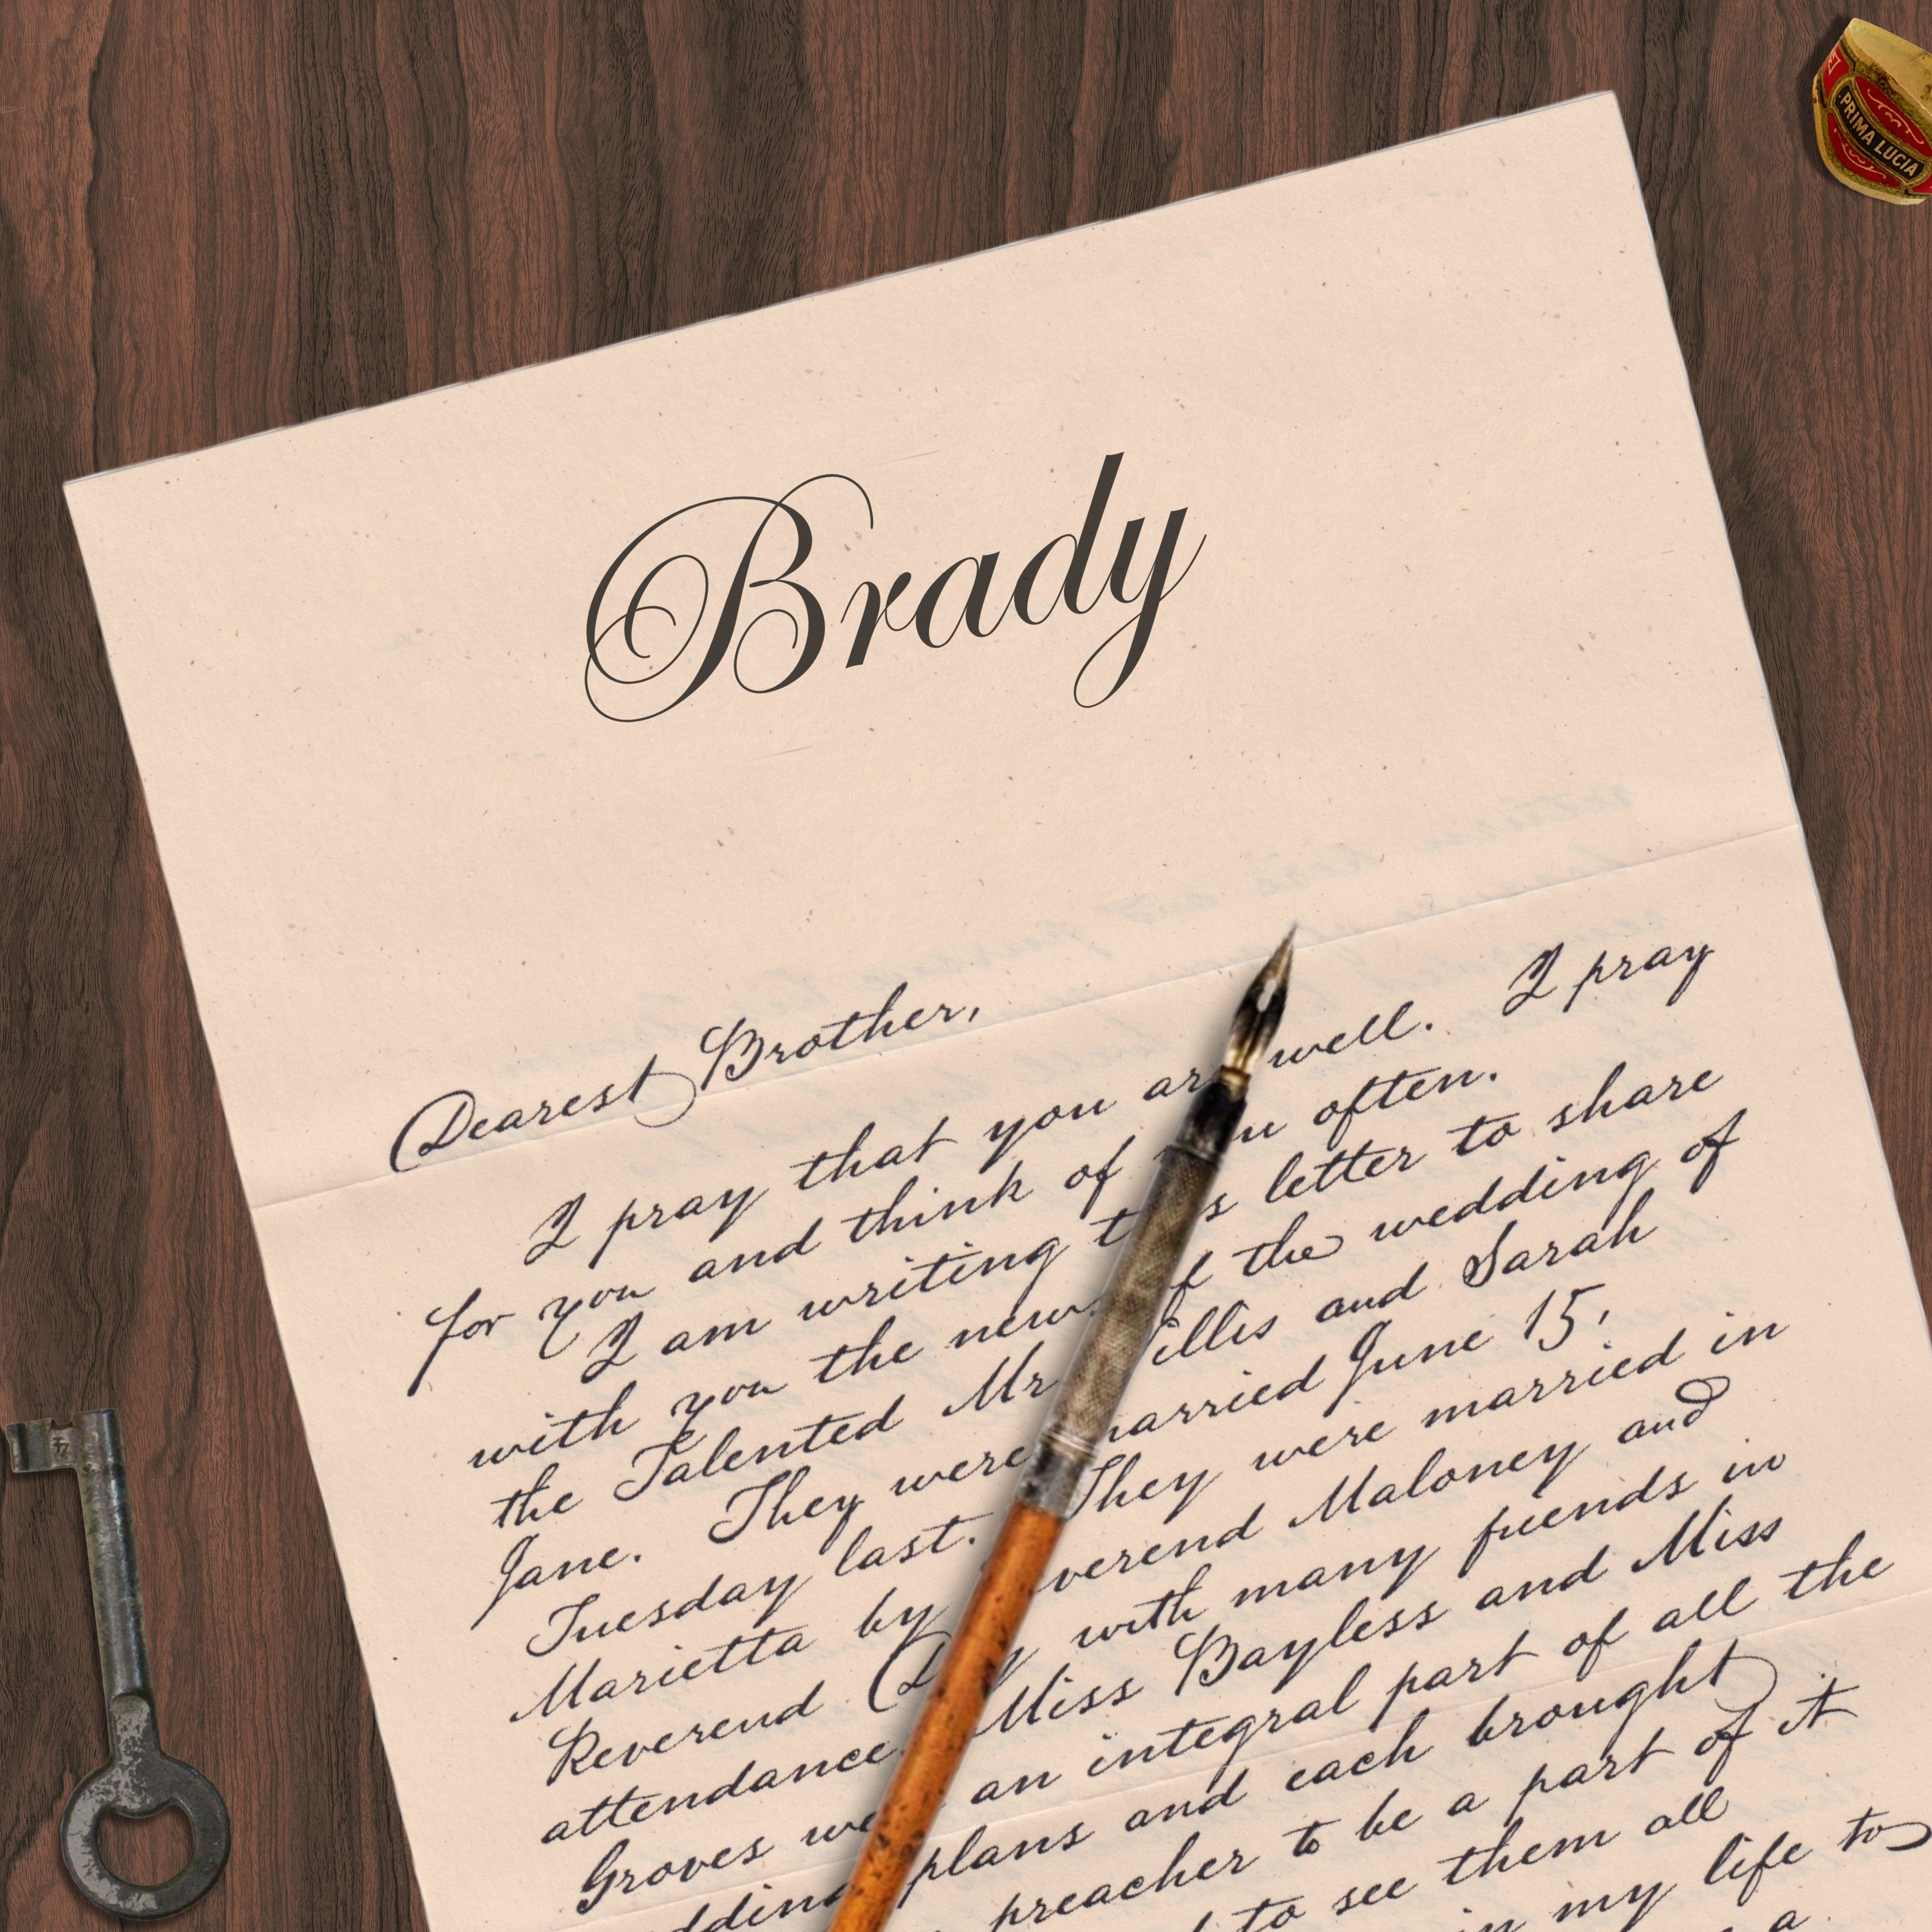 PRIMA LUCIA
Brady
Dearest Brother,
I pray that you are well. I pray
for you and think of you often.
I am writing this letter to share
with you the news of the wedding of
the Talented Mr. Willis and Sarah
Jane. They were married June 15,
Tuesday last. They were married in
Marietta by Reverend Maloney and
Reverend Day with many friends in
attendance. Miss Bayless and Miss
Groves were an integral part of all the
wedding plans and each brought
preacher to be a part of it
to see them all
in my life to
a